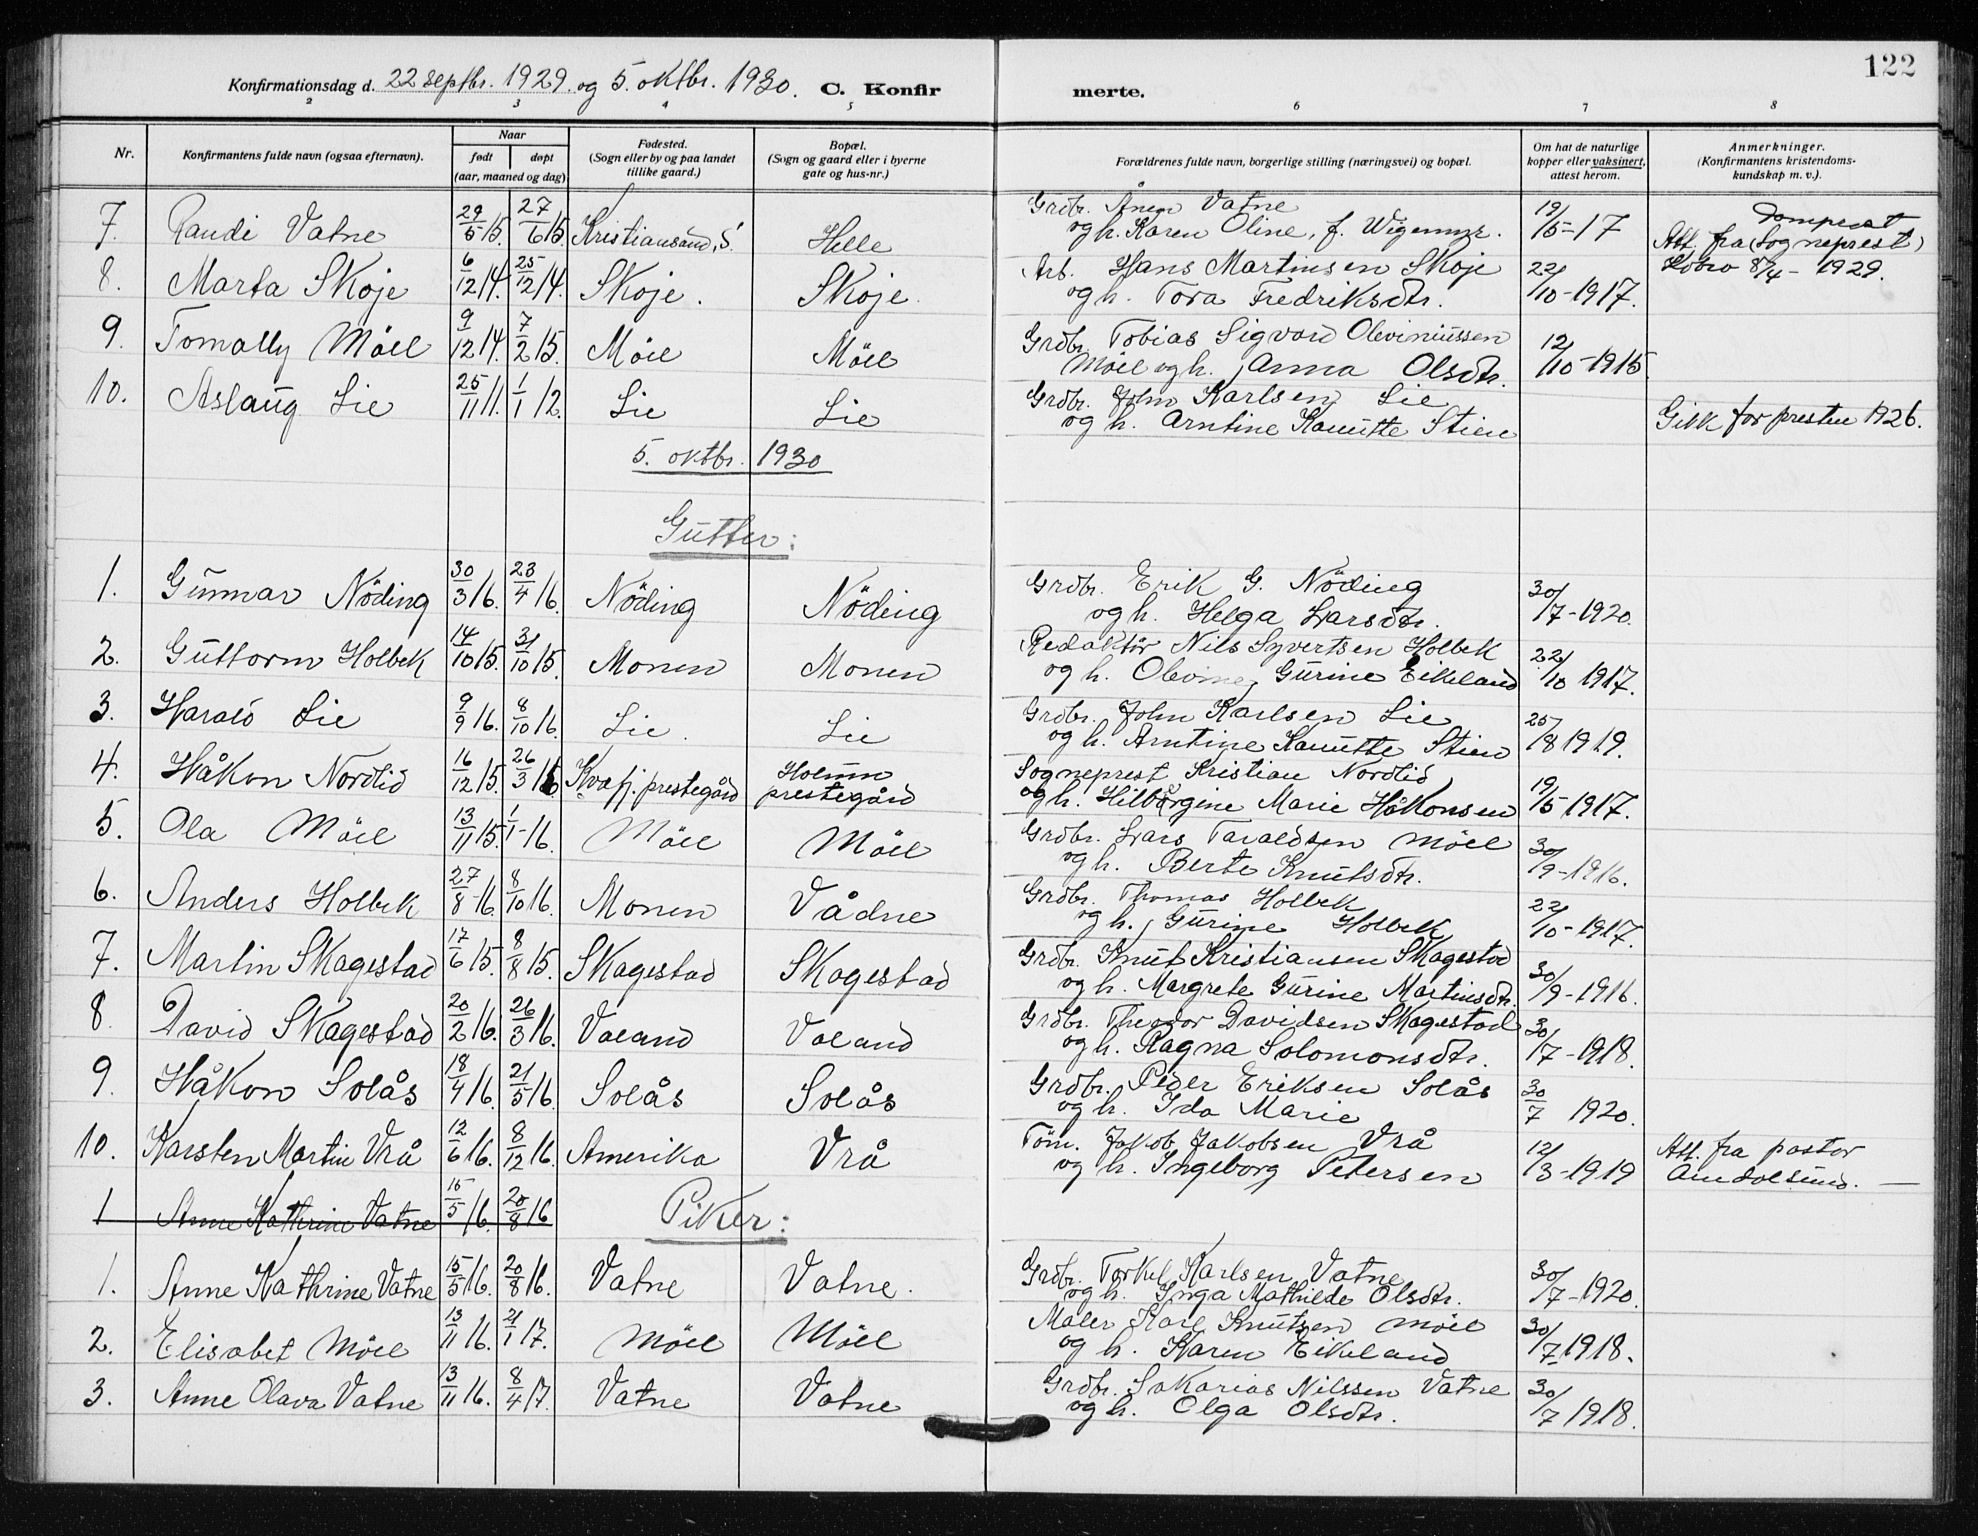 122
Konfirmationsdag d. 22 septbr. 1929. og 5. oktbr. 1930. C. Konfirmerte.
2 3 4 5 6 7 8
Nr. | Konfirmantens fulde navn (ogsaa efternavn). | Naar født | døpt (aar, maaned og dag) | Fødested. (Sogn eller by og paa landet tillike gaard.) | Bopæl. (Sogn og gaard eller i byerne gate og hus-nr.) | Forældrenes fulde navn, borgerlige stilling (næringsvei) og bopæl. | Om hat de naturlige kopper eller vaksinert, attest herom. | Anmerkninger. (Konfirmantens kristendomskundskap m. v.).
7. Randi Vatne 29/5 15. 27/6 15. Kristiansand, S. Helle Grdbr. Ånen Vatne og h. Karen Oline, f. 19/5-17 Att. fra (Sogneprest) Dompr 8/4 - 1929.
8. Marta Skøje 6/12 14. 25/12 14. Skøje. Skøje. Arb. Hans Martinsen Skøje og h. Tora Fredriksdtr. 22/10-1917.
9. Tomally Möll 9/12 14. 7/2 15. Möll Möll Grdbr. Tobias Sigvard Oleviniussen Möll og h. Anna Olsdtr. 12/10-1915.
10. Aslaug Lie 25/11 11. 1/1 12. Lie Lie Grdbr. John Karlsen Lie og h. Arntine Kanutte Stien Gikk for presten 1926.
5. oktbr. 1930
Gutter:
1. Gunnar Nöding 30/3 16. 23/4 16. Nöding Nöding Grdbr. Erik G. Nöding og h. Helga Larsdtr. 30/7-1920.
2. Guttorm Holbek 14/10 15. 31/10 15. Monen Monen Redaktör Nils Syvertsen Holbek og h. Olevine Gurine Eikeland 22/10 1917.
3. Harald Lie 9/9 16. 8/10 16. Lie. Lie Grdbr. John Karlsen Lie og h. Arntine Kanutte Stien 25/8 1919.
4. Håkon Nordlid 16/12 15. 26/3 16. Kvæfj. prestegård Holum prestegård Sogneprest Kristian Nordlid og h. Hilbørgine Marie Håkonsen 19/5-1917.
5. Ola Möll 13/11 15. 1/1-16. Möll Möll Grdbr. Lars Taraldsen Möll og h. Berte Knutsdtr. 30/9-1916.
6. Anders Holbek 27/8-16. 8/10 16. Monen Vådne Grdbr. Thomas Holbek og h. Gurine Holbek 22/10-1917.
7. Martin Skagestad 17/6 15. 8/8 15. Skagestad Skagestad Grdbr. Knut Kristiansen Skagestad og h. Margrete Gurine Martinsdtr. 30/9-1916.
8. David Skagestad 20/2 16. 26/3 16. Valand Valand Grdbr. Theodor Davidsen Skagestad og h. Ragna Solomonsdtr. 30/7-1918.
9. Håkon Solås 18/4 16. 21/5 16. Solås Solås Grdbr. Peder Eriksen Solås og h. Ida Marie 30/7 1920.
10. Karsten Martin Vrå 12/6 16. 8/12 16. Amerika Vrå Töm. Jakob Jakobsen Vrå og h. Ingeborg Petersen 12/3-1919 Att. fra pastor Amdalsund. —
1 Anne Kathrine Vatne 15/5 16. 20/8 16
Piker:
1. Anne Kathrine Vatne 15/5 16. 20/8 16. Vatne Vatne. Grdbr. Torkel Karlsen Vatne og h. Inga Mathilde Olsdtr. 30/7-1920.
2. Elisabet Möll 13/11 16. 21/1 17. Möll Möll Maler Karl Knutsen Möll og h. Karen Eikeland 30/7-1918.
3. Anne Olava Vatne 3/11 16. 8/4 17. Vatne Vatne Grdbr. Sakarias Nilssen Vatne og h. Olga Olsdtr. 30/7 1918.